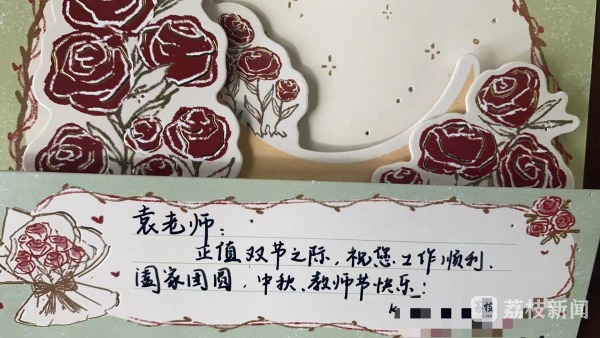 袁老师：
正值双节之际，祝您工作顺利、
阖家团圆，中秋、教师节快乐！
荔枝新闻